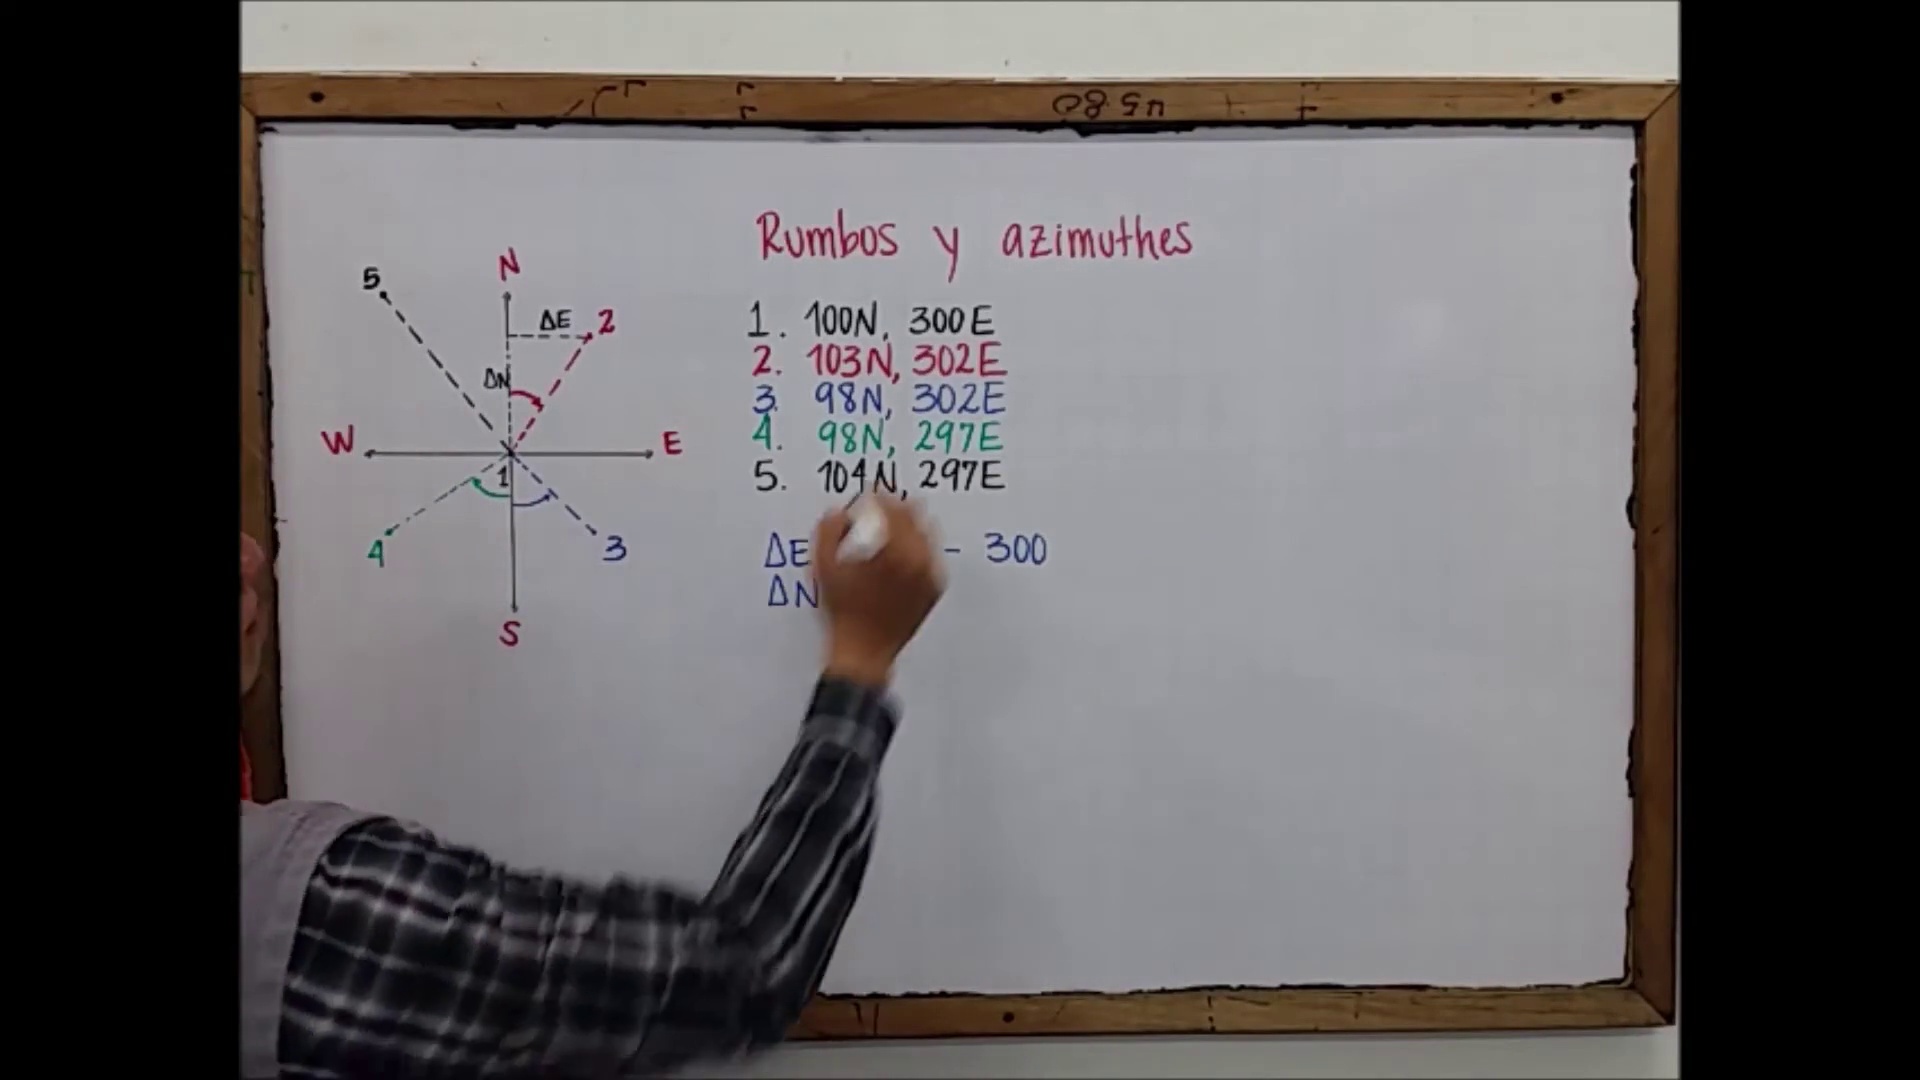 Rumbos y azimuthes
N
5
ΔE 2
ΔN
W E
1
4 3
S
1. 100N, 300E
2. 103N, 302E
3. 98N, 302E
4. 98N, 297E
5. 104N, 297E
ΔE - 300
ΔN